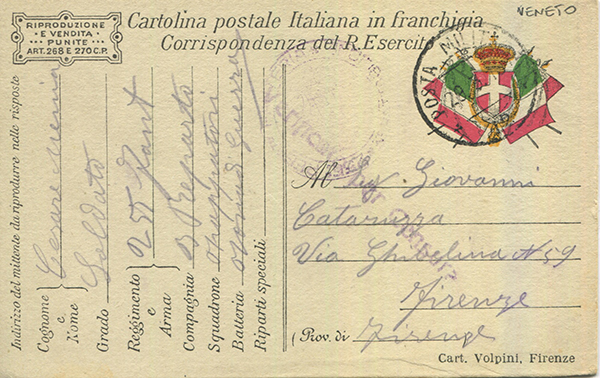 RIPRODUZIONE
E VENDITA
PUNITE
ART. 268 E 270 C.P.
Cartolina postale Italiana in franchigia
Corrispondenza del R. Esercito
VENETO
POSTA MILIT
Indirizzo del mittente da riprodurre nelle risposte
Cognome
e
Nome
Cesare
Grado
Soldato
Reggimento
e
Arma
255 Fant
Compagnia
Reparto
Squadrone
Zappatori
Batteria
Zona di Guerra
Riparti speciali
M
Giovanni
Cataruzza
Via Ghibelina N 59
Firenze
(Prov. di Firenze
Cart. Volpini, Firenze